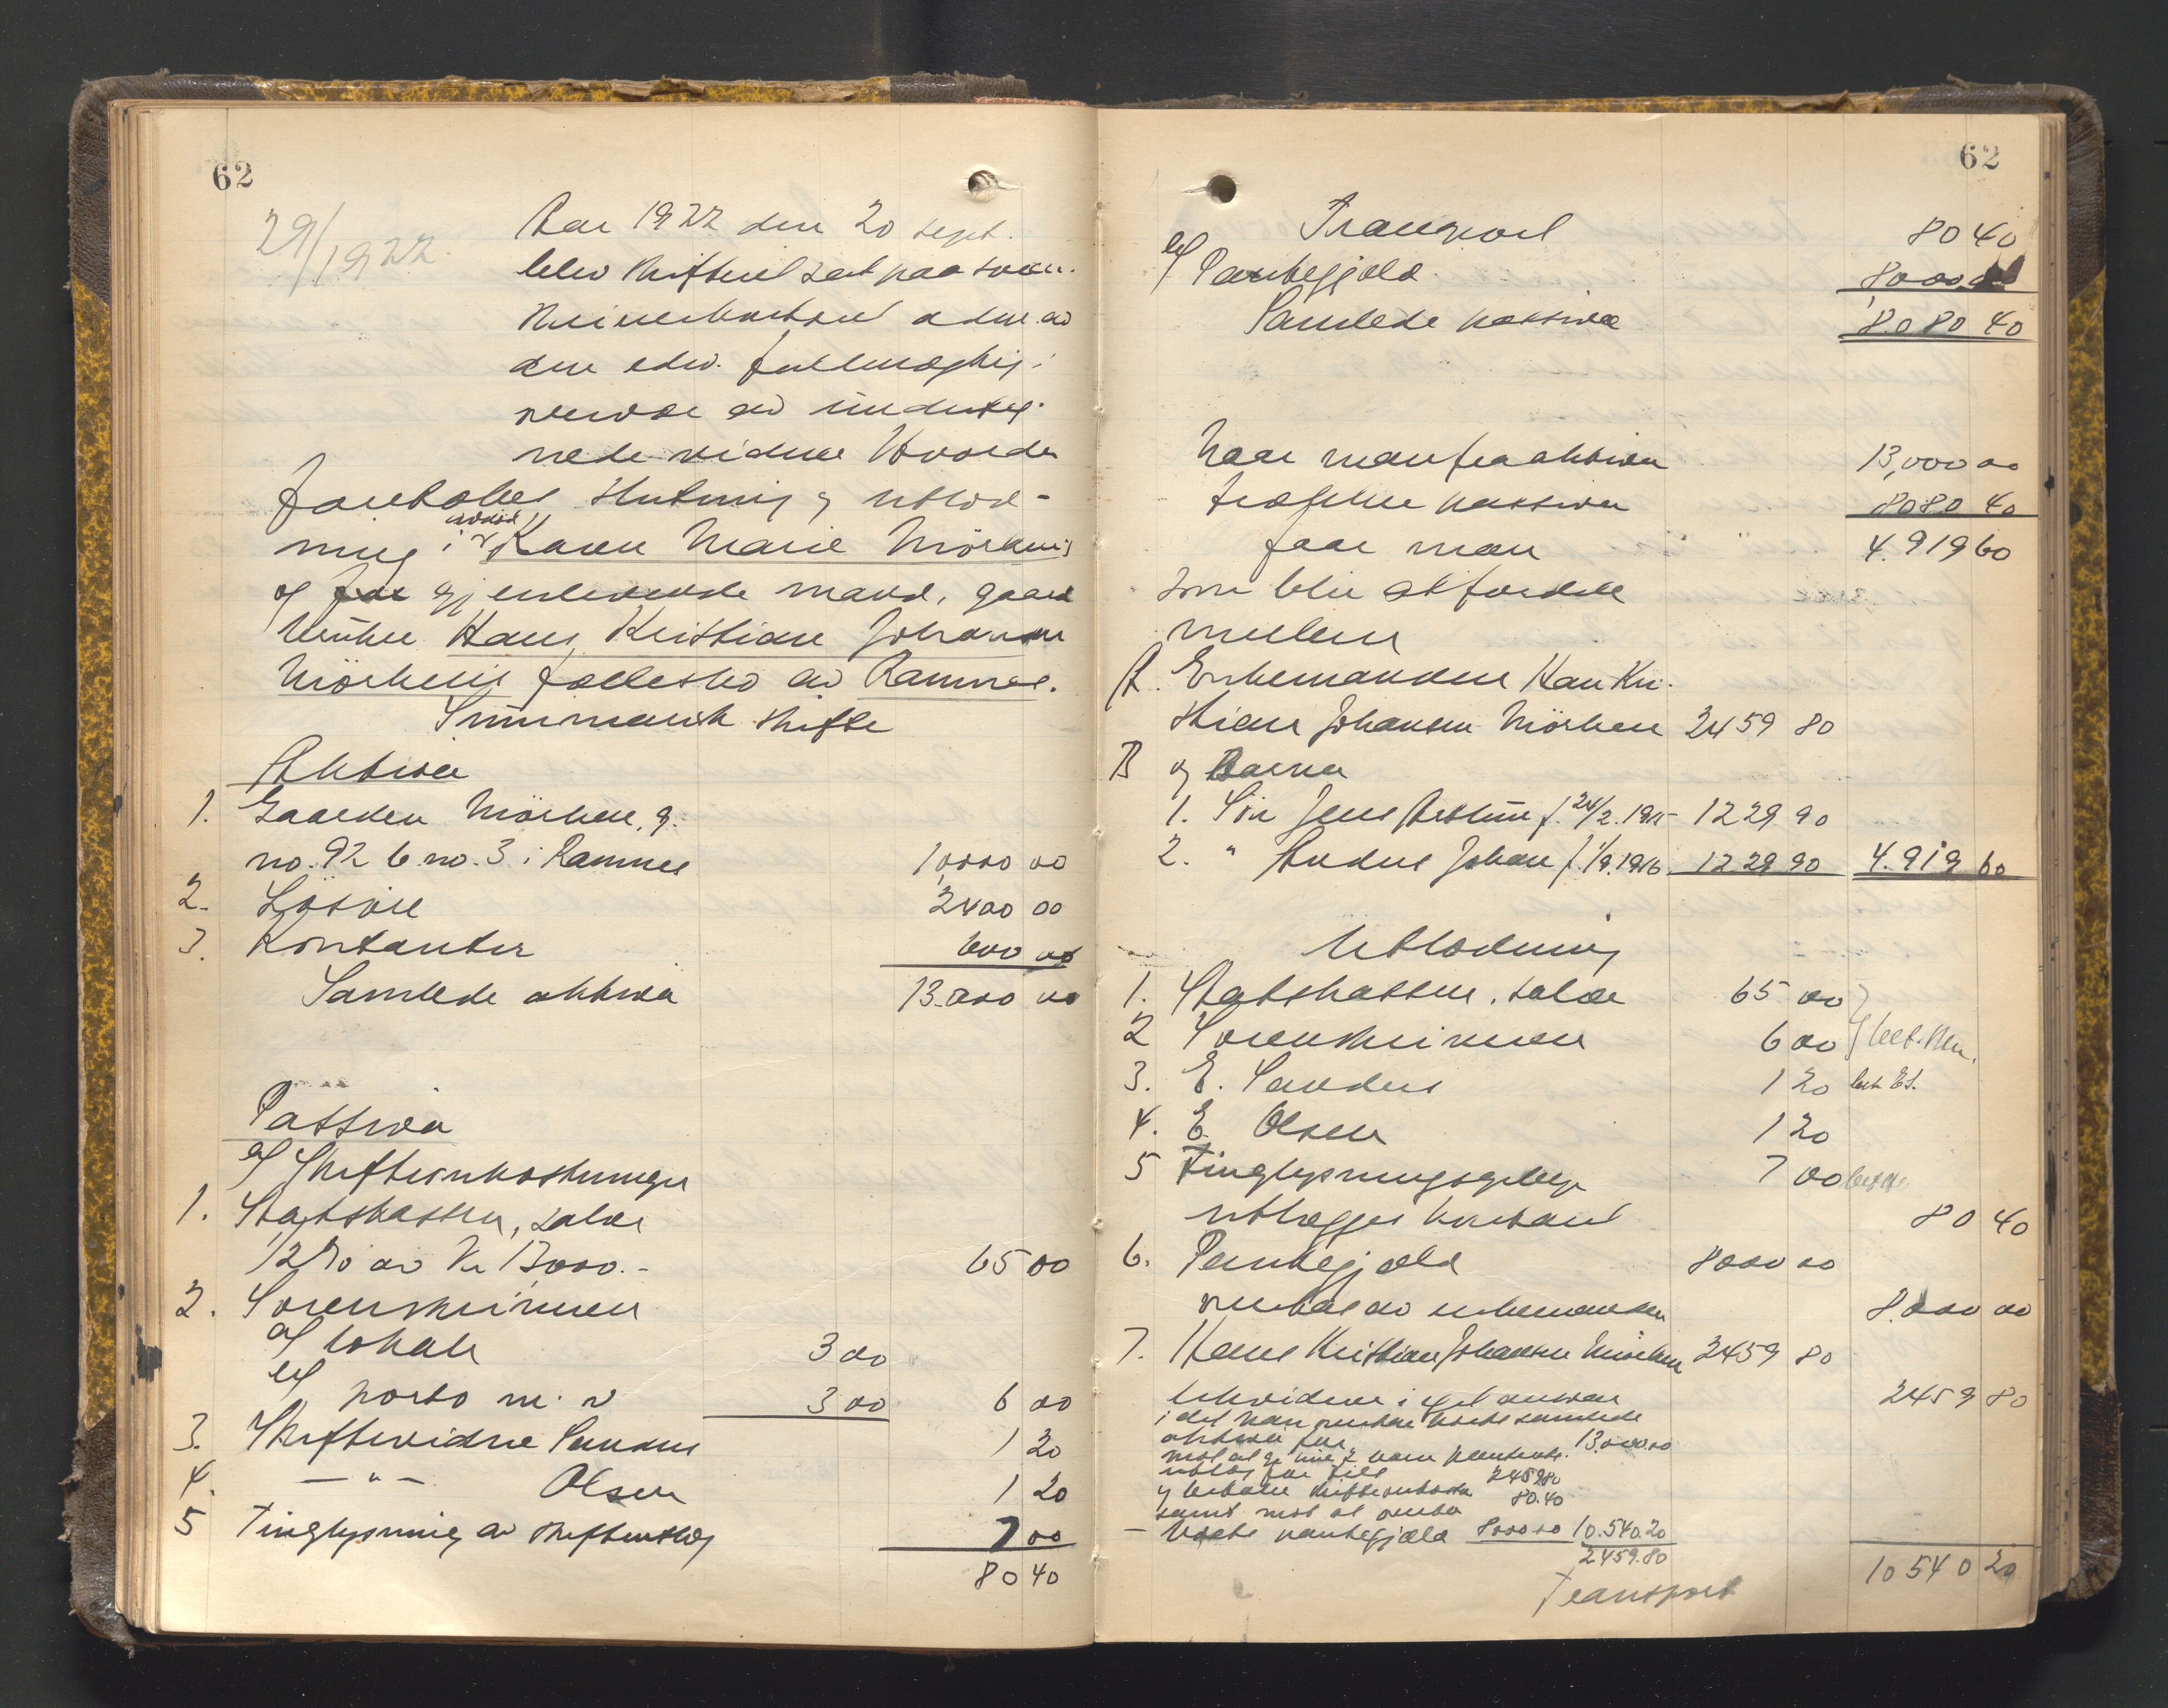 62
29/1922.
Aar 1922 den 20 sept.
blev skifteret sat paa soren-
skriverkontoret adm. av
den edsv. fullmægtig i
nærvær av underteg-
nede vidner. Hvorda
foretokes slutning og utlod-
ning i avdøde Karen Marie Mørkens
og gjenlevende mand, gaard
bruker Hans Kristian Johansen
Mörken fællesbo av Ramnes.
Summarisk skifte
Aktiva
1. Gaarden Mörken, g.
no. 92 b.no. 3 i Ramnes 10,000 00
2. Løsøre 2400 00
3. Kontanter 600 00
Samlede aktiva 13.000 00
Passiva
a/ Skifteomkostninger
1. Statskassen, salær
1/2 % av Kr 13000.- 65 00
2. Sorenskriveren
a/ lokale 3 00
b/ porto m. v 3 00 6 00
3. Skiftevidne Sanders 1 20
4. — " — Olsen 1 20
5 Tinglysning av skifteutlæg 7 00
80 40
62
Transport 80 40
b/ Pantegjæld 8000
Samlede passiva 8.080 40
Naar man fra aktiva 13,000 00
trækker passiva 8080 40
faar man 4.919 60
som blir at fordele
mellem
A. Enkemanden Han Kri-
stian Johansen Mörken 2459 80
B og Barna
1. Søn Jens f. 24/2. 1915 1229 90
2. " Anders Johan f. 1/9. 1916 1229 90 4.919 60
Utlodning
1. Statskassen, salær 65 00
2 Sorenskriveren 6 00
3. E. Sanders 1 20
4. E. Olsen 1 20
5 Tinglysningsgebyr 7 00
utlægges kontant 80 40
6. Pantegjæld 8000 00
overtas av enkemanden 8.000 00
7. Hans Kristian Johansen Mörken 2459 80
bekvidner i eget ansvar 2459 80
i det han overtar boets samlede
aktiva for 13.000.00
mot at gi sine 2 barn
utlæg for 2459.80
og betale skifteomkostn. 80.40
samt mot at overta
— boets pantegjæld 8000 00 10.540.20
2.459.80
Transport 10 540 20